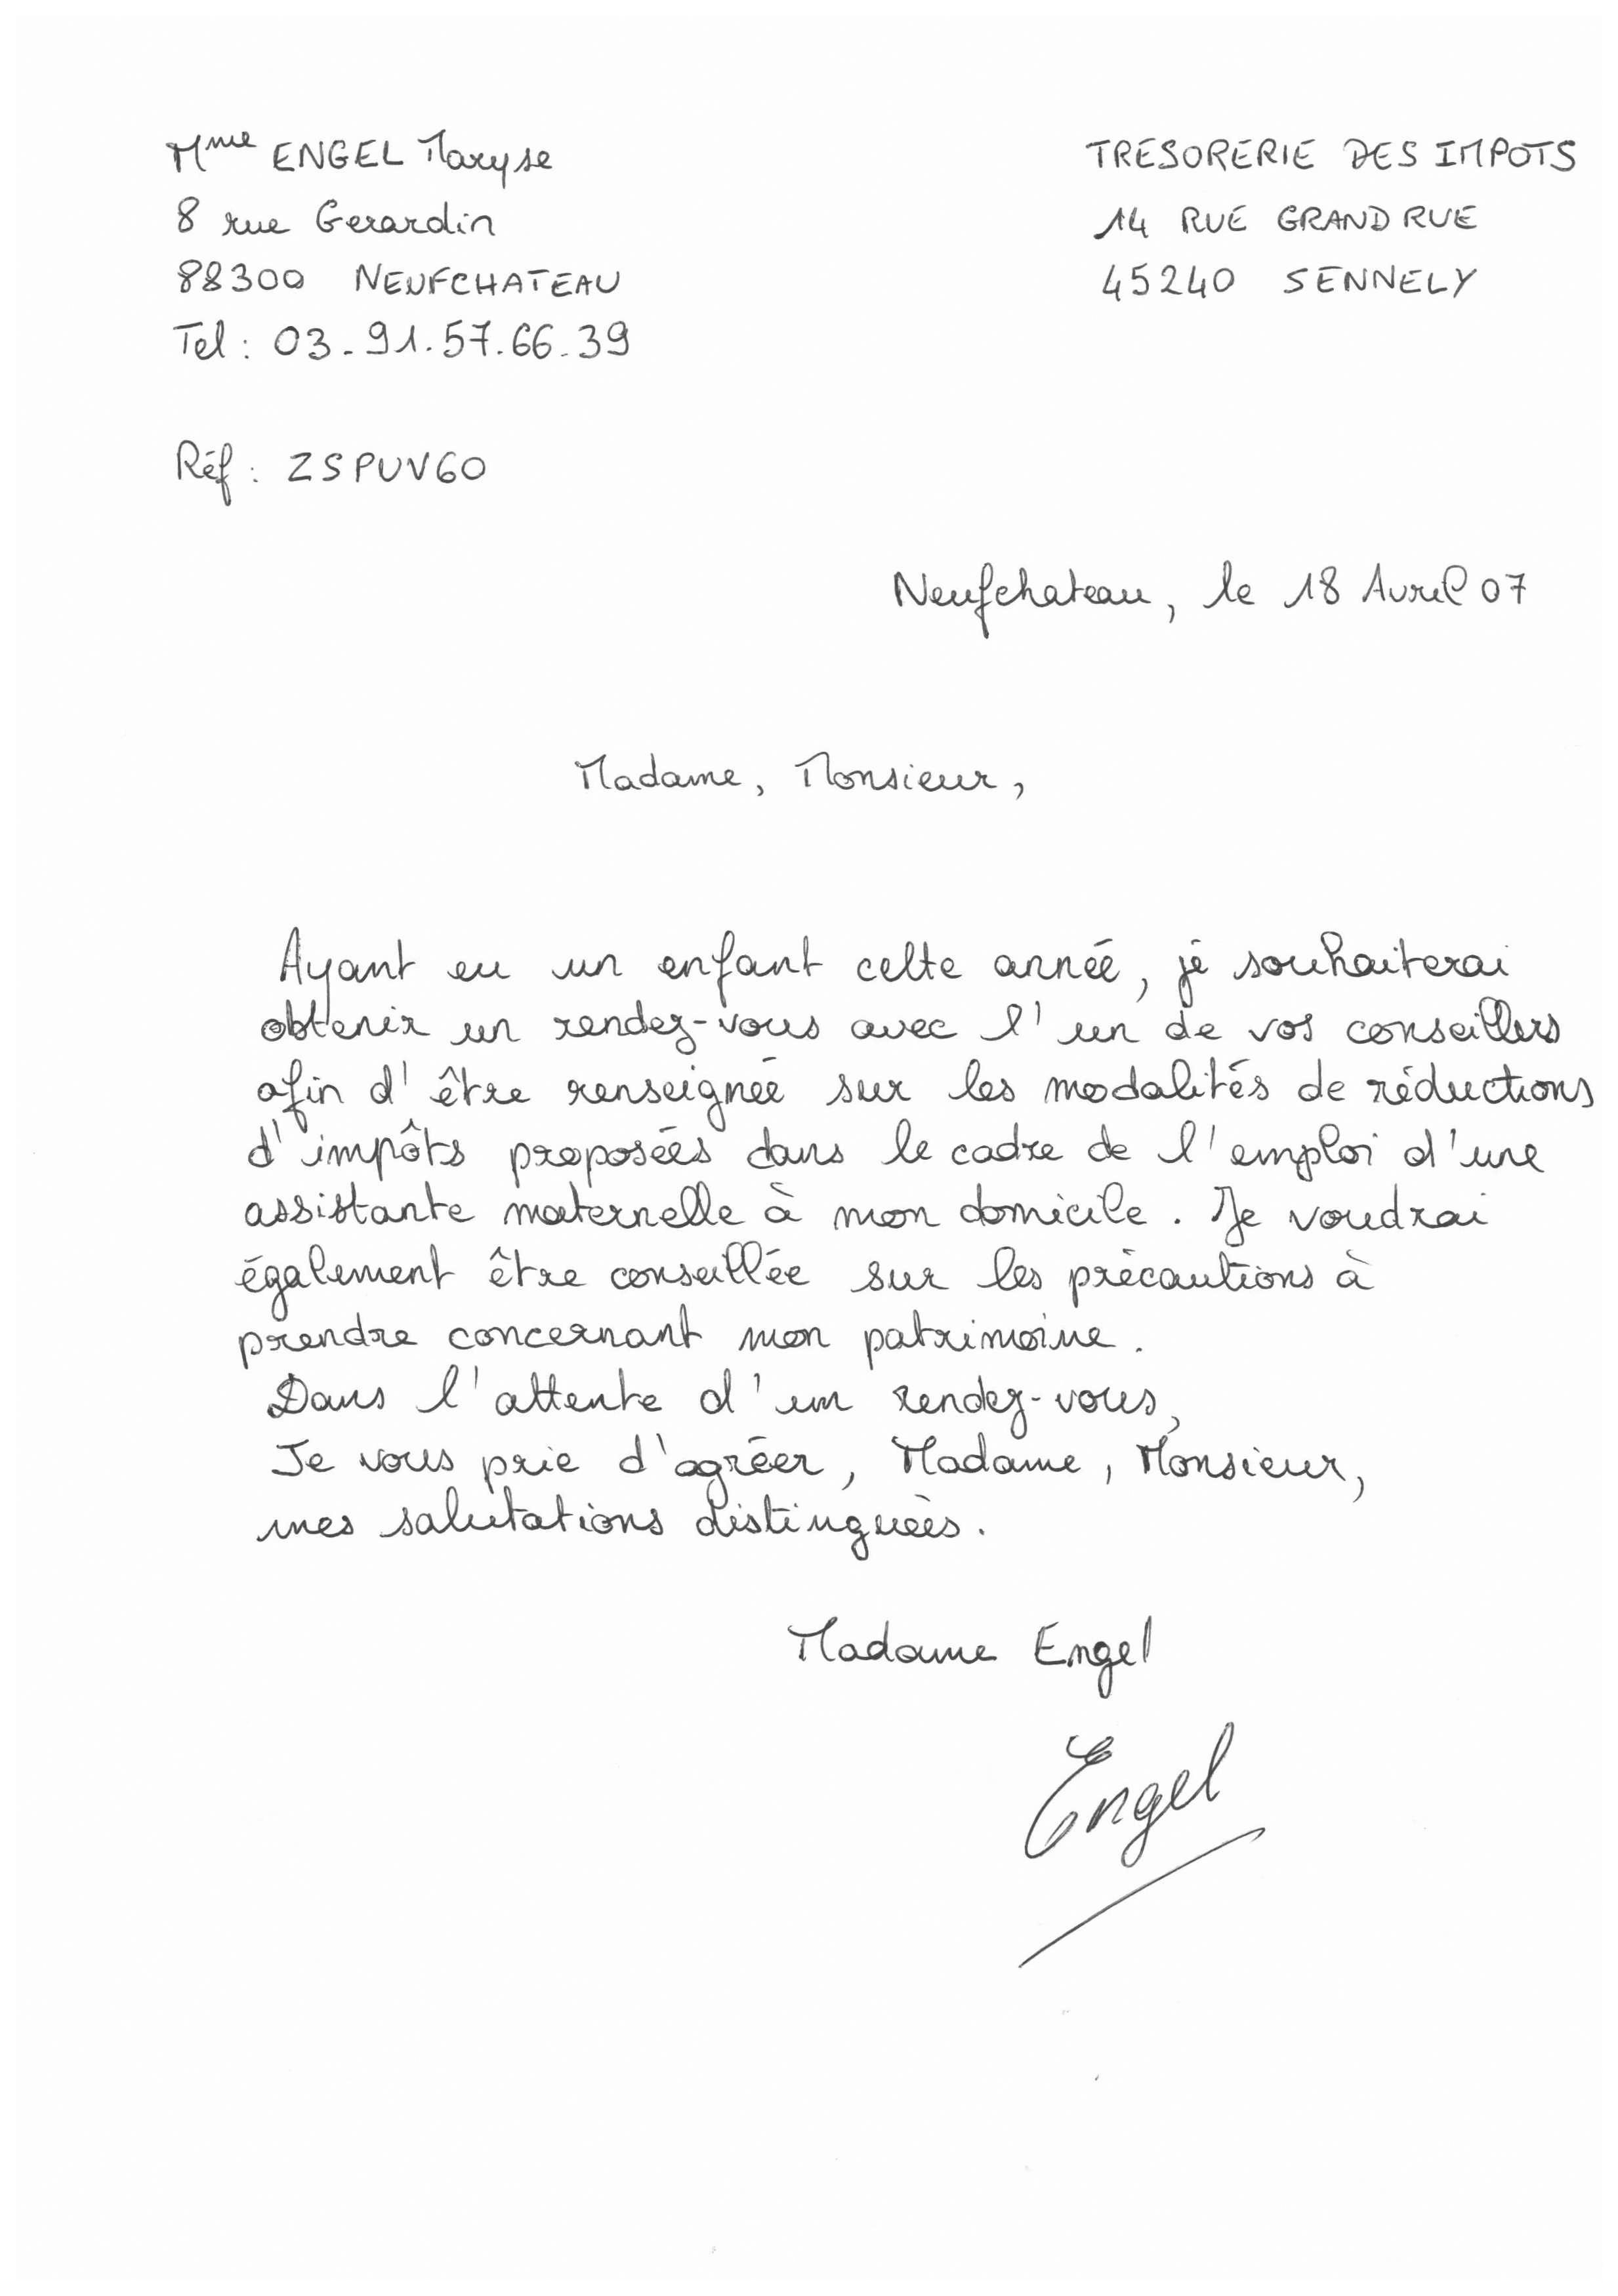 Mme ENGEL Maryse
8 rue Gerardin
88300 NEUFCHATEAU
Tel : 03.91.57.66.39
TRESORERIE DES IMPOTS
14 RUE GRAND RUE
45240 SENNELY
Réf : ZSPUV60
Neufchateau, le 18 Avril 07
Madame, Monsieur,
Ayant eu un enfant cette année, je souhaiterai
obtenir un rendez-vous avec l'un de vos conseillers
afin d'être renseignée sur les modalités de réductions
d'impôts proposées dans le cadre de l'emploi d'une
assistante maternelle à mon domicile. Je voudrai
également être conseillée sur les précautions à
prendre concernant mon patrimoine.
Dans l'attente d'un rendez-vous,
Je vous prie d'agréer, Madame, Monsieur,
mes salutations distinguées.
Madame Engel
Engel